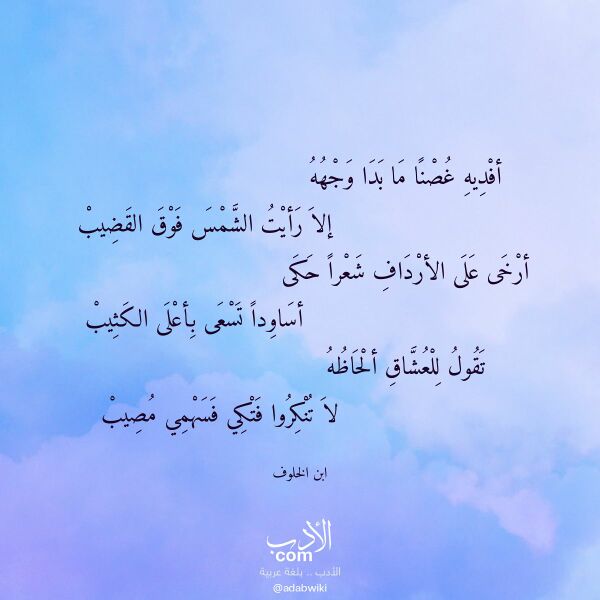 أفْدِيهِ غُصْنًا مَا بَدَا وَجْهُهُ
إلاَ رَأيْتُ الشَّمْسَ فَوْقَ القَضِيبْ
أرْخَى عَلَى الأرْدَافِ شَعْراً حَكَى
أسَاوِداً تَسْعَى بِأعْلَى الكَثِيبْ
تَقُولُ لِلْعُشَّاقِ ألْحَاظُهُ
لاَ تُنْكِرُوا فَتْكِي فَسَهْمِي مُصِيبْ
ابن الخلوف
الأدب
com
الأدب .. بلغة عربية
@adabwiki